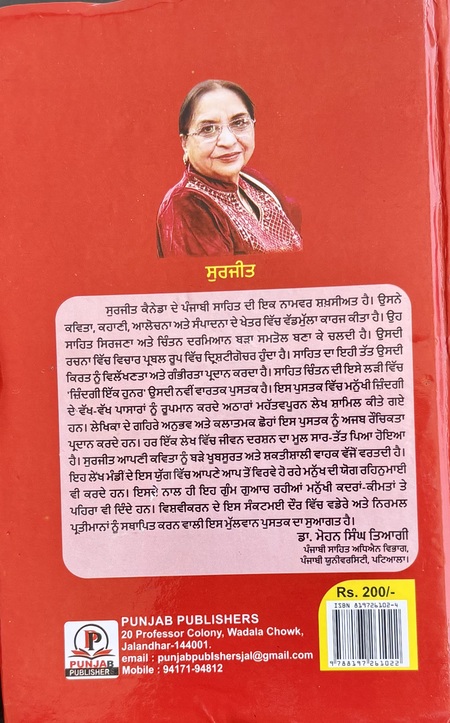 ਸੁਰਜੀਤ
ਸੁਰਜੀਤ ਕੈਨੇਡਾ ਦੇ ਪੰਜਾਬੀ ਸਾਹਿਤ ਦੀ ਇਕ ਨਾਮਵਰ ਸ਼ਖ਼ਸੀਅਤ ਹੈ। ਉਸਨੇ
ਕਵਿਤਾ, ਕਹਾਣੀ, ਆਲੋਚਨਾ ਅਤੇ ਸੰਪਾਦਨਾ ਦੇ ਖੇਤਰ ਵਿੱਚ ਵੱਡਮੁੱਲਾ ਕਾਰਜ ਕੀਤਾ ਹੈ। ਉਹ
ਸਾਹਿਤ ਸਿਰਜਣਾ ਅਤੇ ਚਿੰਤਨ ਦਰਮਿਆਨ ਬੜਾ ਸਮਤੋਲ ਬਣਾ ਕੇ ਚਲਦੀ ਹੈ। ਉਸਦੀ
ਰਚਨਾ ਵਿੱਚ ਵਿਚਾਰ ਪ੍ਰਬਲ ਰੂਪ ਵਿੱਚ ਦ੍ਰਿਸ਼ਟੀਗੋਚਰ ਹੁੰਦਾ ਹੈ। ਸਾਹਿਤ ਦਾ ਇਹੀ ਤੱਤ ਉਸਦੀ
ਕਿਰਤ ਨੂੰ ਵਿਲੱਖਣਤਾ ਅਤੇ ਗੰਭੀਰਤਾ ਪ੍ਰਦਾਨ ਕਰਦਾ ਹੈ। ਸਾਹਿਤ ਚਿੰਤਨ ਦੀ ਇਸੇ ਲੜੀ ਵਿੱਚ
'ਜ਼ਿੰਦਗੀ ਇੱਕ ਹੁਨਰ' ਉਸਦੀ ਨਵੀਂ ਵਾਰਤਕ ਪੁਸਤਕ ਹੈ। ਇਸ ਪੁਸਤਕ ਵਿੱਚ ਮਨੁੱਖੀ ਜ਼ਿੰਦਗੀ
ਦੇ ਵੱਖ-ਵੱਖ ਪਾਸਾਰਾਂ ਨੂੰ ਰੂਪਮਾਨ ਕਰਦੇ ਅਠਾਰਾਂ ਮਹੱਤਵਪੂਰਨ ਲੇਖ ਸ਼ਾਮਿਲ ਕੀਤੇ ਗਏ
ਹਨ। ਲੇਖਿਕਾ ਦੇ ਗਹਿਰੇ ਅਨੁਭਵ ਅਤੇ ਕਲਾਤਮਕ ਛੋਹਾਂ ਇਸ ਪੁਸਤਕ ਨੂੰ ਅਜਬ ਰੌਚਿਕਤਾ
ਪ੍ਰਦਾਨ ਕਰਦੇ ਹਨ। ਹਰ ਇੱਕ ਲੇਖ ਵਿੱਚ ਜੀਵਨ ਦਰਸ਼ਨ ਦਾ ਮੂਲ ਸਾਰ-ਤੱਤ ਪਿਆ ਹੋਇਆ
ਹੈ। ਸੁਰਜੀਤ ਆਪਣੀ ਕਵਿਤਾ ਨੂੰ ਬੜੇ ਖੂਬਸੂਰਤ ਅਤੇ ਸ਼ਕਤੀਸ਼ਾਲੀ ਵਾਹਕ ਵੱਜੋਂ ਵਰਤਦੀ ਹੈ।
ਇਹ ਲੇਖ ਮੰਡੀ ਦੇ ਇਸ ਯੁੱਗ ਵਿੱਚ ਆਪਣੇ ਆਪ ਤੋਂ ਵਿਰਵੇ ਹੋ ਰਹੇ ਮਨੁੱਖ ਦੀ ਯੋਗ ਰਹਿਨੁਮਾਈ
ਵੀ ਕਰਦੇ ਹਨ। ਇਸਦੇ ਨਾਲ ਹੀ ਇਹ ਗੁੰਮ ਗੁਆਚ ਰਹੀਆਂ ਮਨੁੱਖੀ ਕਦਰਾਂ-ਕੀਮਤਾਂ ਤੇ
ਪਹਿਰਾ ਵੀ ਦਿੰਦੇ ਹਨ। ਵਿਸ਼ਵੀਕਰਨ ਦੇ ਇਸ ਸੰਕਟਮਈ ਦੌਰ ਵਿੱਚ ਵਡੇਰੇ ਅਤੇ ਨਿਰਮਲ
ਪ੍ਰਤੀਮਾਨਾਂ ਨੂੰ ਸਥਾਪਿਤ ਕਰਨ ਵਾਲੀ ਇਸ ਮੁੱਲਵਾਨ ਪੁਸਤਕ ਦਾ ਸੁਆਗਤ ਹੈ।
ਡਾ. ਮੋਹਨ ਸਿੰਘ ਤਿਆਗੀ
ਪੰਜਾਬੀ ਸਾਹਿਤ ਅਧਿਐਨ ਵਿਭਾਗ,
ਪੰਜਾਬੀ ਯੂਨੀਵਰਸਿਟੀ, ਪਟਿਆਲਾ।
P
PUNJAB
PUBLISHER
PUNJAB PUBLISHERS
20 Professor Colony, Wadala Chowk,
Jalandhar-144001.
email : punjabpublshersjal@gmail.com
Mobile : 94171-94812
Rs. 200/-
ISBN 819726102-4
9 788197 261022